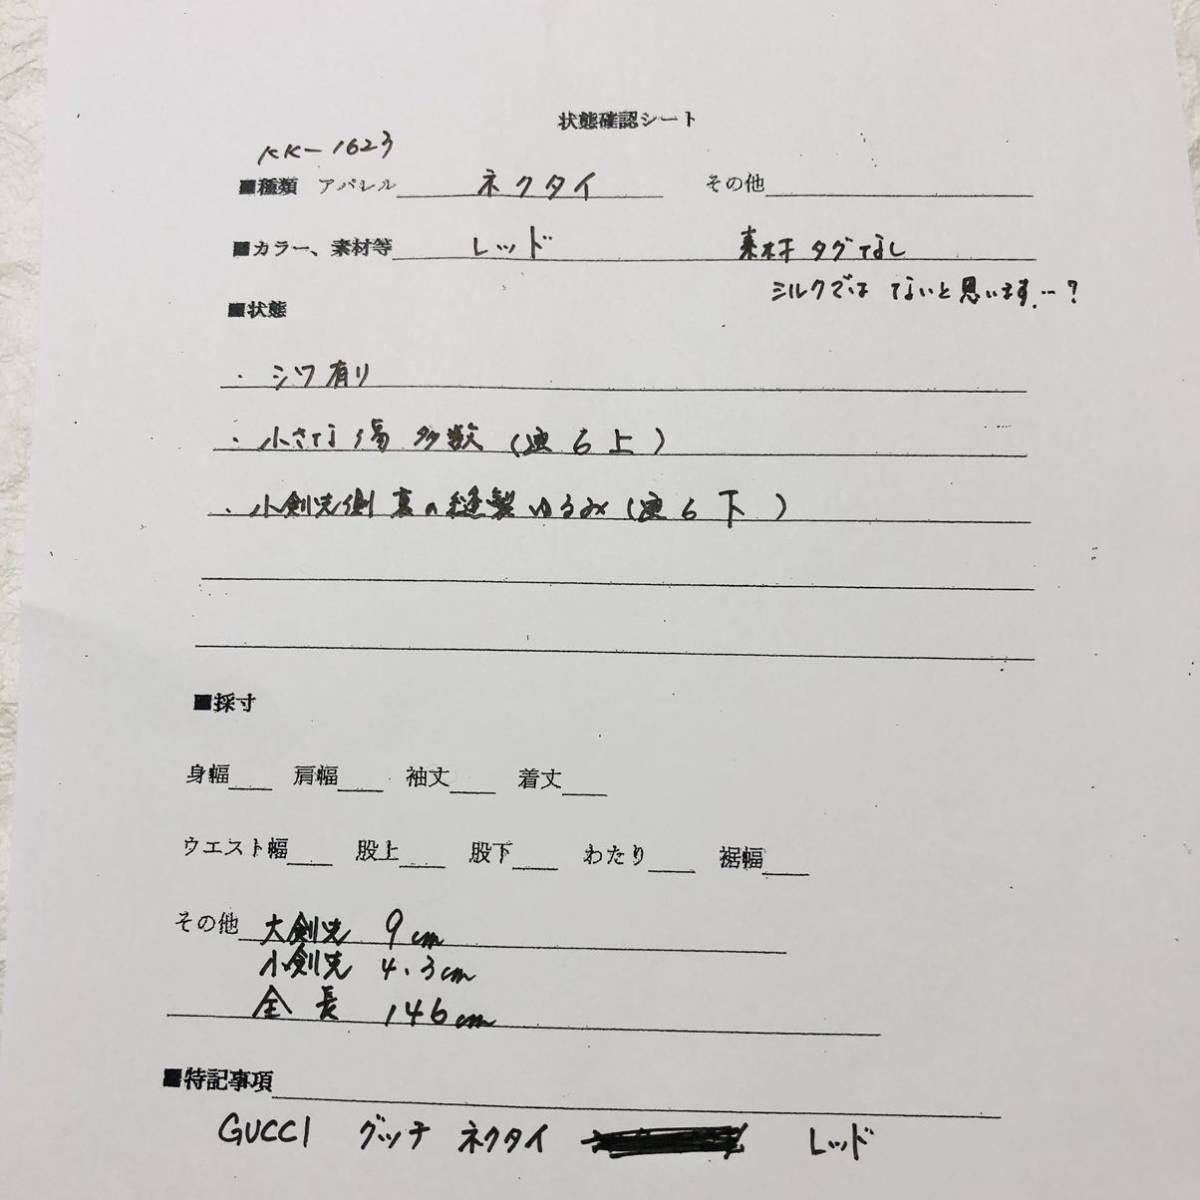 状態確認シート
KK-1623
■種類 アパレル ネクタイ その他
■カラー、素材等 レッド 素材タグなし
シルクではないと思います…?
■状態
・シワ有り
・小さな傷 多数 (連6上)
・小剣先側 裏の縫製ゆるみ (連6下)
■採寸
身幅 肩幅 袖丈 着丈
ウエスト幅 股上 股下 わたり 裾幅
その他 大剣先 9cm
小剣先 4.3cm
全長 146cm
■特記事項
GUCCI グッチ ネクタイ レッド